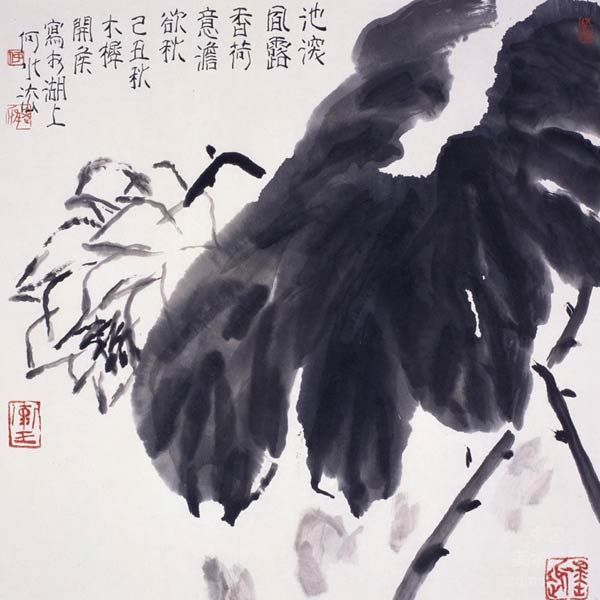 池深
風露
香荷
意澹
欲秋
己丑秋
木樨
開矦
寫於湖上
何水法